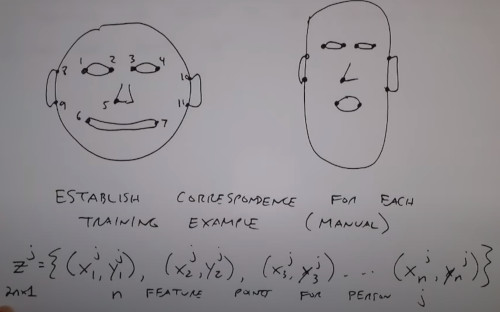 1 2 3 4
8 10
5
9 11
6 7
ESTABLISH CORRESPONDENCE FOR EACH
TRAINING EXAMPLE (MANUAL)
z^j = { (x_1^j, y_1^j), (x_2^j, y_2^j), (x_3^j, y_3^j) ... (x_n^j, y_n^j) }
2n×1 n FEATURE POINTS FOR PERSON j